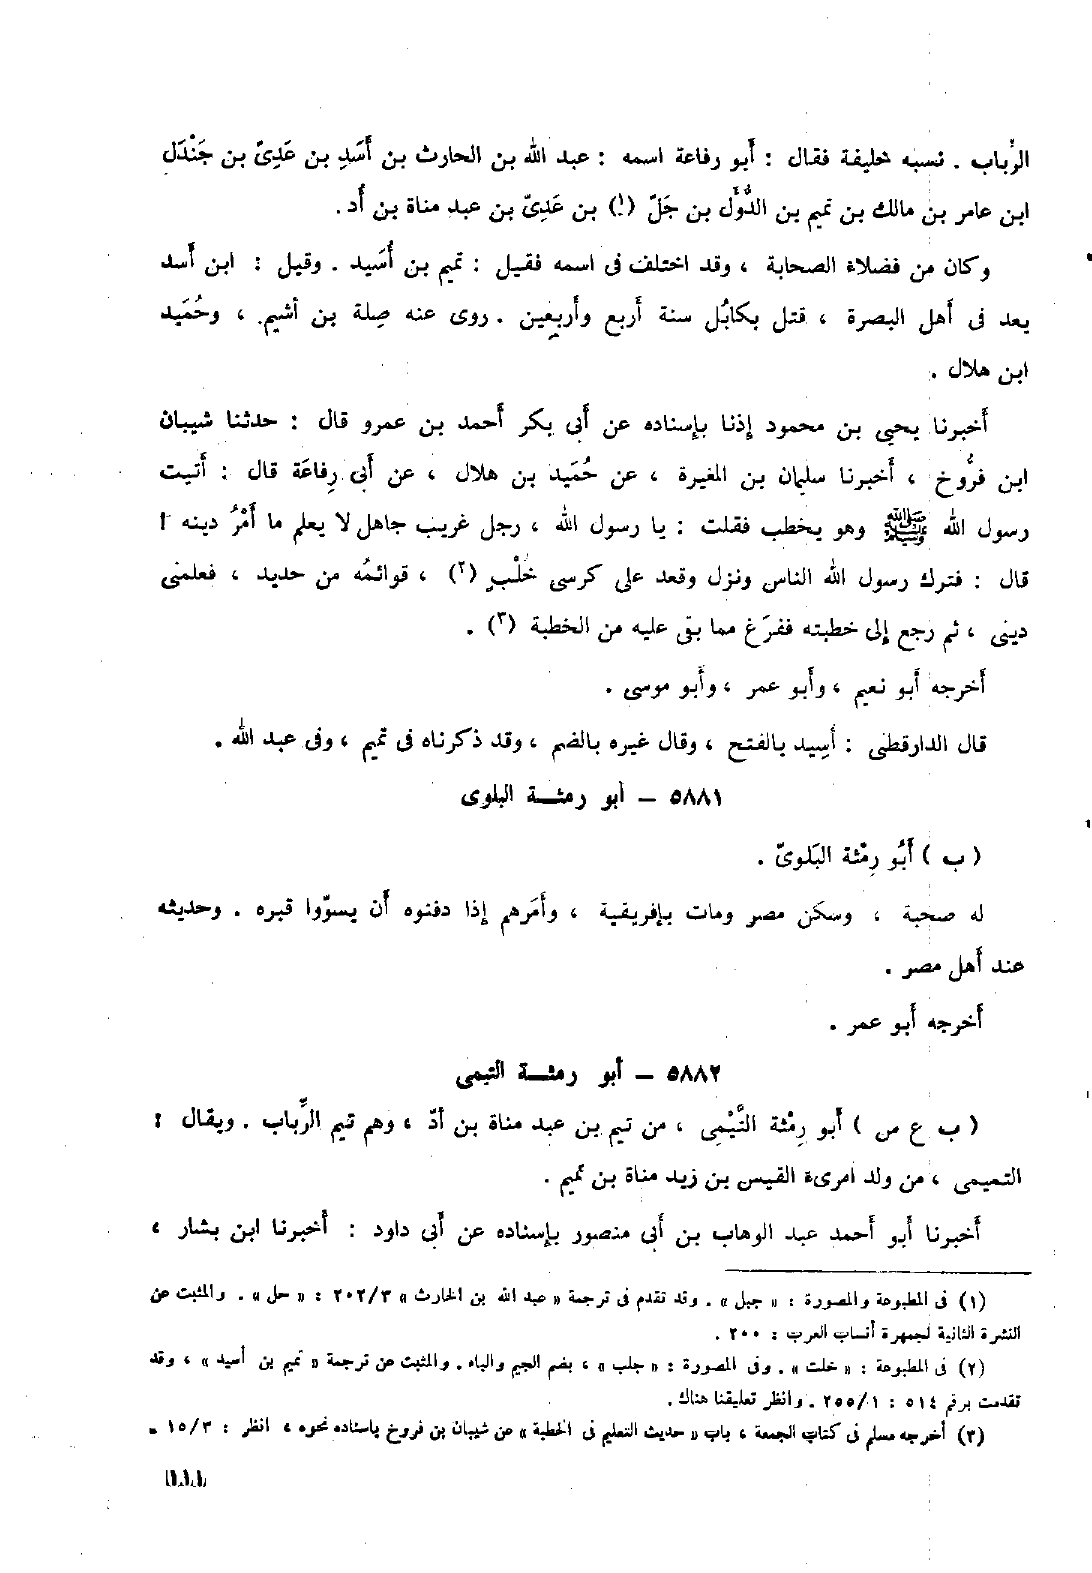 الرِّباب . نسبه خليفة فقال : أَبو رفاعة اسمه : عبد الله بن الحارث بن أَسَدِ بن عَدِىّ بن جَنْدَل
ابن عامر بن مالك بن تميم بن الدُّوَّل بن جَلّ (١) بن عَدِىّ بن عبد مناة بن أُد.
وكان من فضلاء الصحابة ، وقد اختلف فى اسمه فقيل : تميم بن أُسَيد . وقيل : ابن أَسد
يعد فى أَهل البصرة ، قتل بكابُل سنة أَربع وأَربعين . روى عنه صِلة بن أَشيم ، وحُمَيد
ابن هلال .
أَخبرنا يحيى بن محمود إذنا بإسناده عن أَبى بكر أَحمد بن عمرو قال : حدثنا شيبان
ابن فرُّوخ ، أَخبرنا سليمان بن المغيرة ، عن حُمَيد بن هلال ، عن أَبى رِفاعَة قال : أَتيت
رسول الله ﷺ وهو يخطب فقلت : يا رسول الله ، رجل غريب جاهل لا يعلم ما أَمْرُ دينه !
قال : فترك رسول الله الناس ونزل وقعد على كرسى خُلْبٍ (٢) ، قوائمُه من حديد ، فعلمنى
دينى ، ثم رجع إلى خطبته ففرَغ مما بقى عليه من الخطبة (٣) .
أَخرجه أَبو نعيم ، وأَبو عمر ، وأَبو موسى .
قال الدارقطنى : أَسِيد بالفتح ، وقال غيره بالضم ، وقد ذكرناه فى تميم ، وفى عبد الله .
٥٨٨١ – أبو رمثـــة البلوى
( ب ) أَبُو رِمْثة البَلوىّ .
له صحبة ، وسكن مصر ومات بإفريقية ، وأَمَرهم إذا دفنوه أَن يسوّوا قبره . وحديثه
عند أَهل مصر .
أَخرجه أَبو عمر .
٥٨٨٢ – أبو رمثـــة التيمى
( ب ع س ) أَبو رِمْثة التَّيْمِى ، من تيم بن عبد مناة بن أدّ ، وهم تيم الرِّباب . ويقال :
التميمى ، من ولد امرىء القيس بن زيد مناة بن تميم .
أَخبرنا أَبو أَحمد عبد الوهاب بن أَبى منصور بإسناده عن أَبى داود : أَخبرنا ابن بشار ،
(١) فى المطبوعة والمصورة : « جبل » . وقد تقدم فى ترجمة « عبد الله بن الحارث » ٢٠٢/٣ : « حل » . والمثبت عن
النشرة الثانية لجمهرة أنساب العرب : ٢٠٠ .
(٢) فى المطبوعة : « خلت » . وفى المصورة : « جلب » ، بضم الجيم والباء . والمثبت عن ترجمة « تميم بن أسيد » ، وقد
تقدمت برقم ٥١٤ : ٢٥٥/١ . وانظر تعليقنا هناك .
(٣) أخرجه مسلم فى كتاب الجمعة ، باب « حديث التعليم فى الخطبة » عن شيبان بن فروخ بإسناده نحوه ، انظر : ١٥/٣ .
١١١